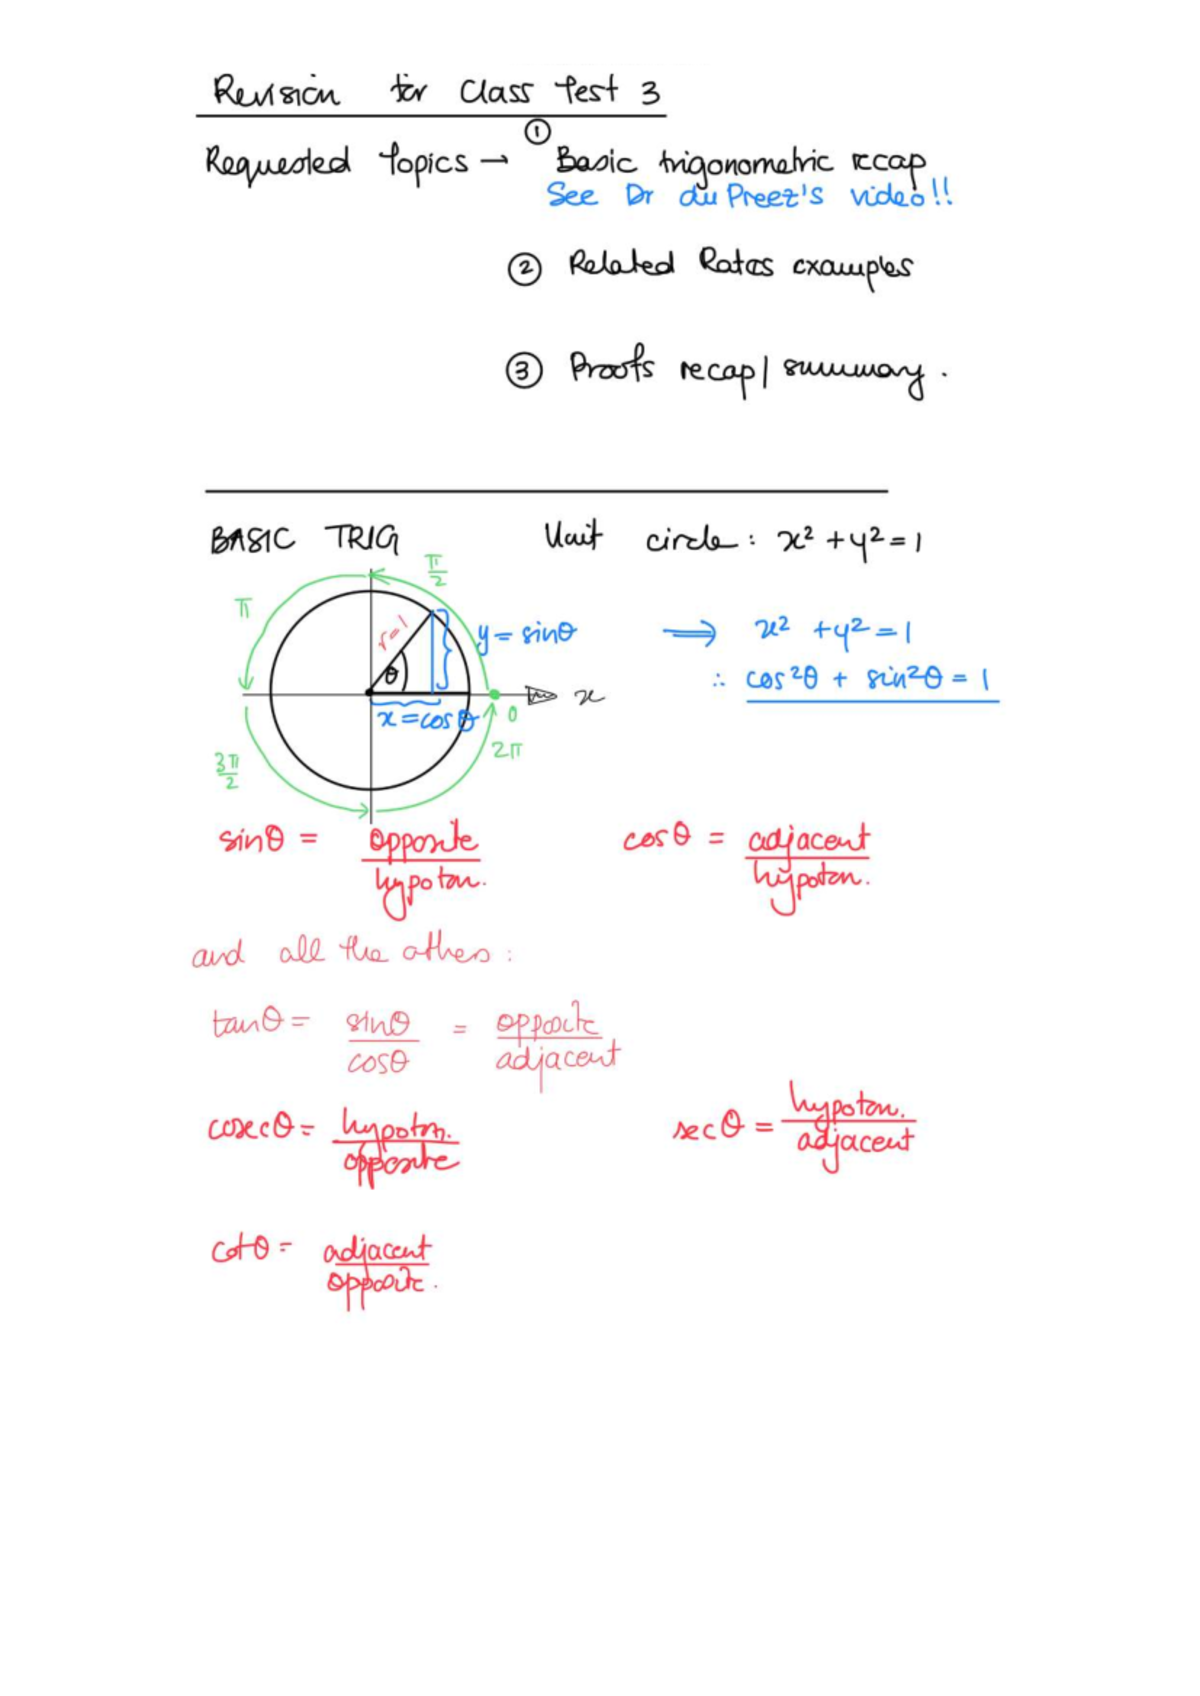 Revision for Class Test 3
Requested Topics → ① Basic trigonometric recap
See Dr du Preez's video!!
② Related Rates examples
③ Proofs recap/summary.
BASIC TRIG Unit circle: x² + y² = 1
π/2
π
r=1
y = sinθ
⟹ x² + y² = 1
θ
∴ cos²θ + sin²θ = 1
x
x = cosθ
0
2π
3π/2
sinθ = opposite/hypoten. cosθ = adjacent/hypoten.
and all the others:
tanθ = sinθ/cosθ = opposite/adjacent
cosecθ = hypoten./opposite secθ = hypoten./adjacent
cotθ = adjacent/opposite.